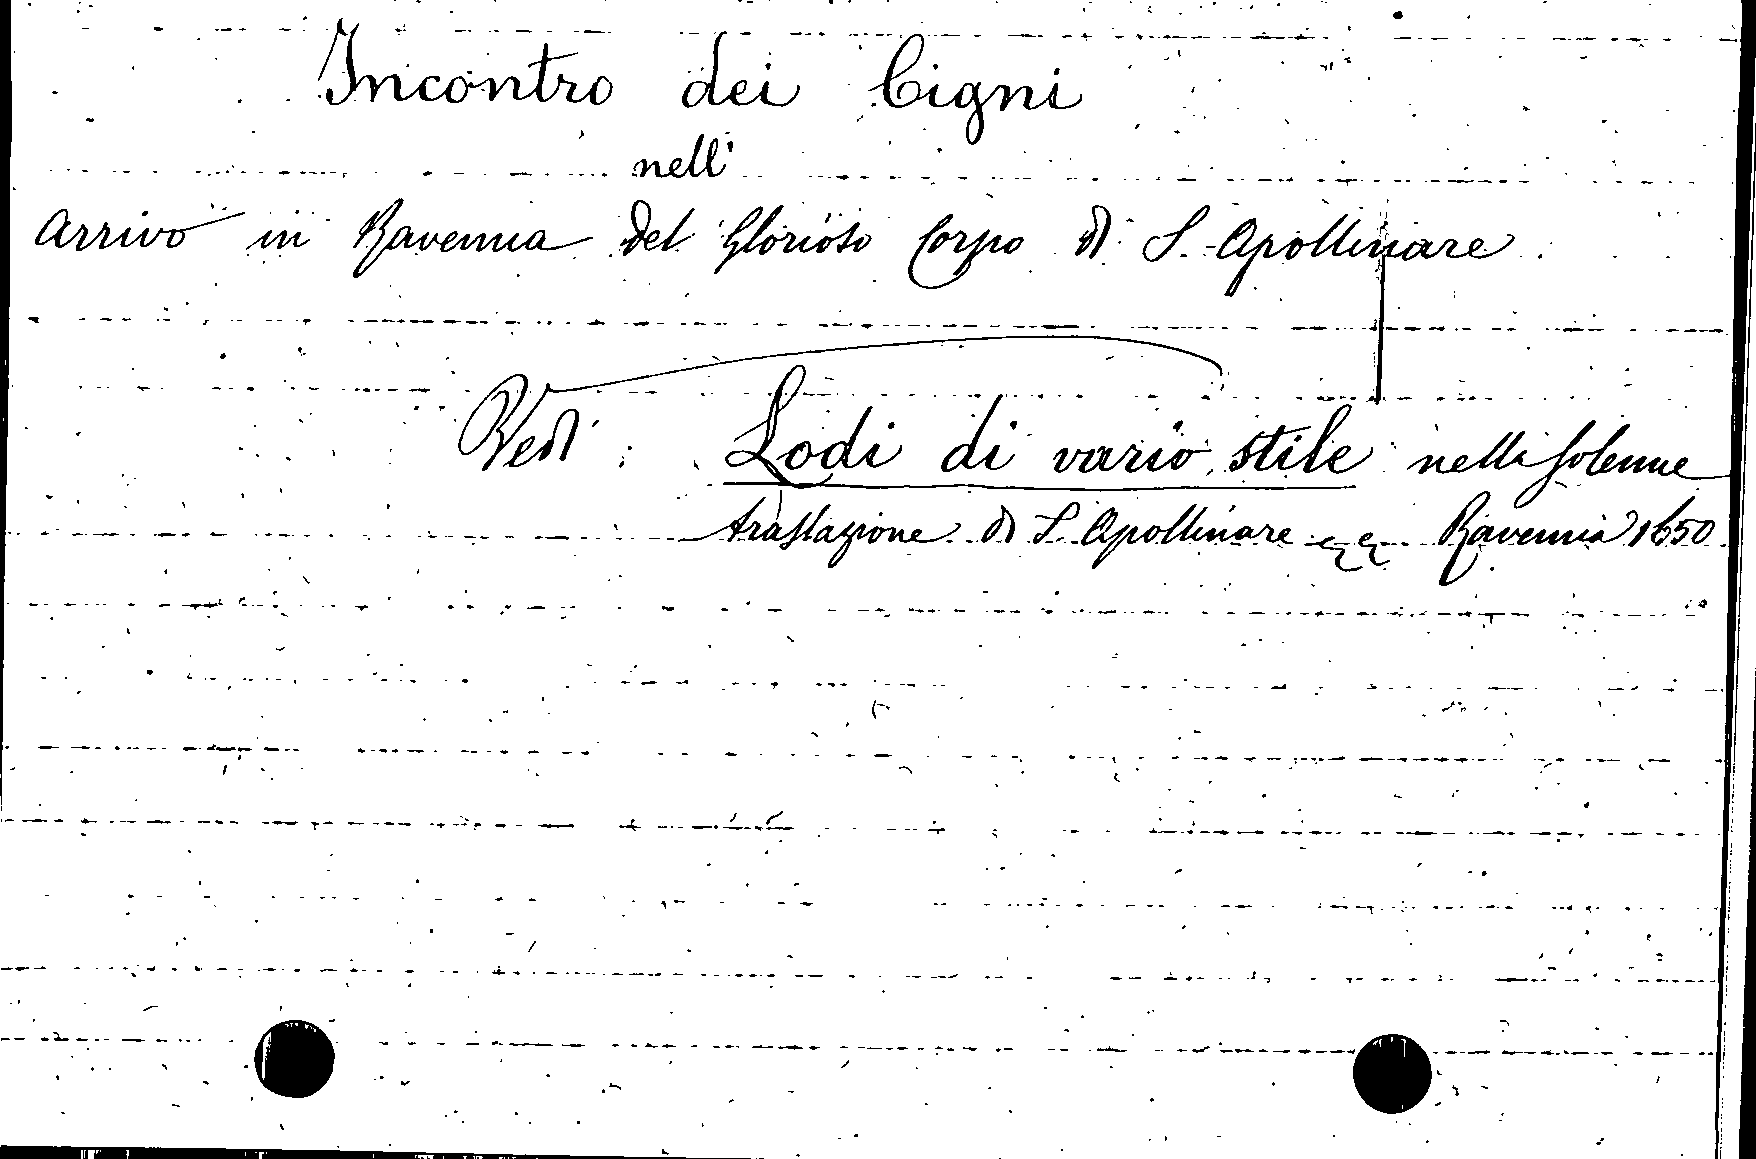 Incontro dei Cigni
nell'
Arrivo in Ravenna del Glorioso Corpo di S. Apollinare
Vedi: Lodi di vario stile nella solenne
traslazione di S. Apollinare Ravenna 1650